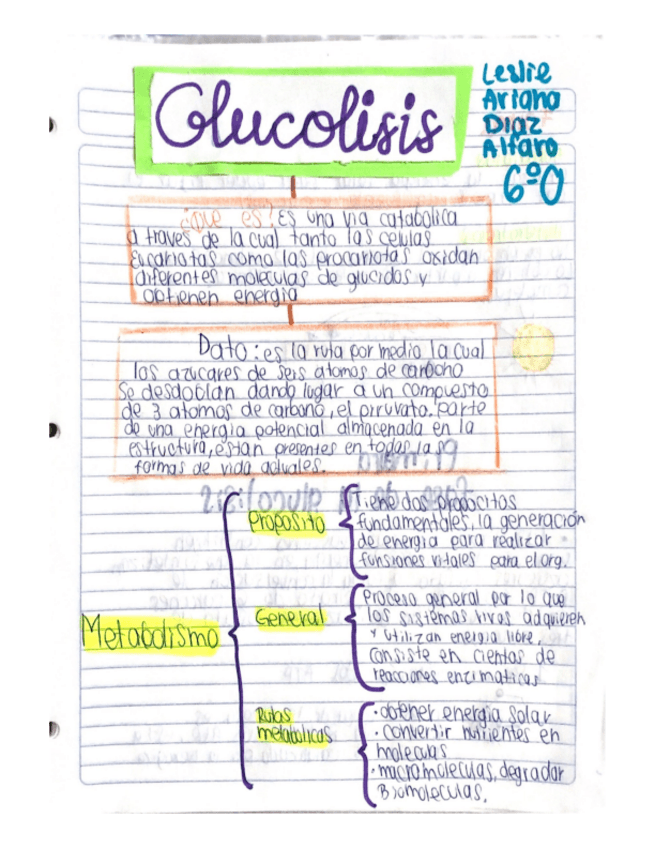 Glucolisis
Leslie
Ariana
Diaz
Alfaro
6ºO
¿Que es? Es una via catabolica
a traves de la cual tanto las celulas
Eucariotas como las procariotas oxidan
diferentes moleculas de glucidos y
obtienen energia
Dato: es la ruta por medio la cual
los azucares de seis atomos de carbono
Se desdoblan dando lugar a un compuesto
de 3 atomos de carbono, el piruvato. Parte
de una energia potencial almacenada en la
estructura, estan presentes en todas las
formas de vida actuales.
Metabolismo
Proposito
Tiene dos propocitos
fundamentales, la generación
de energia para realizar
funsiones vitales para el org.
General
Proceso general por lo que
los sistemas vivos adquieren
y utilizan energia libre,
Consiste en cientos de
reacciones enzimaticas
Rutas
metabolicas
• obtener energia solar
• convertir nutrientes en
moleculas
• macromoleculas, degradar
Biomoleculas.